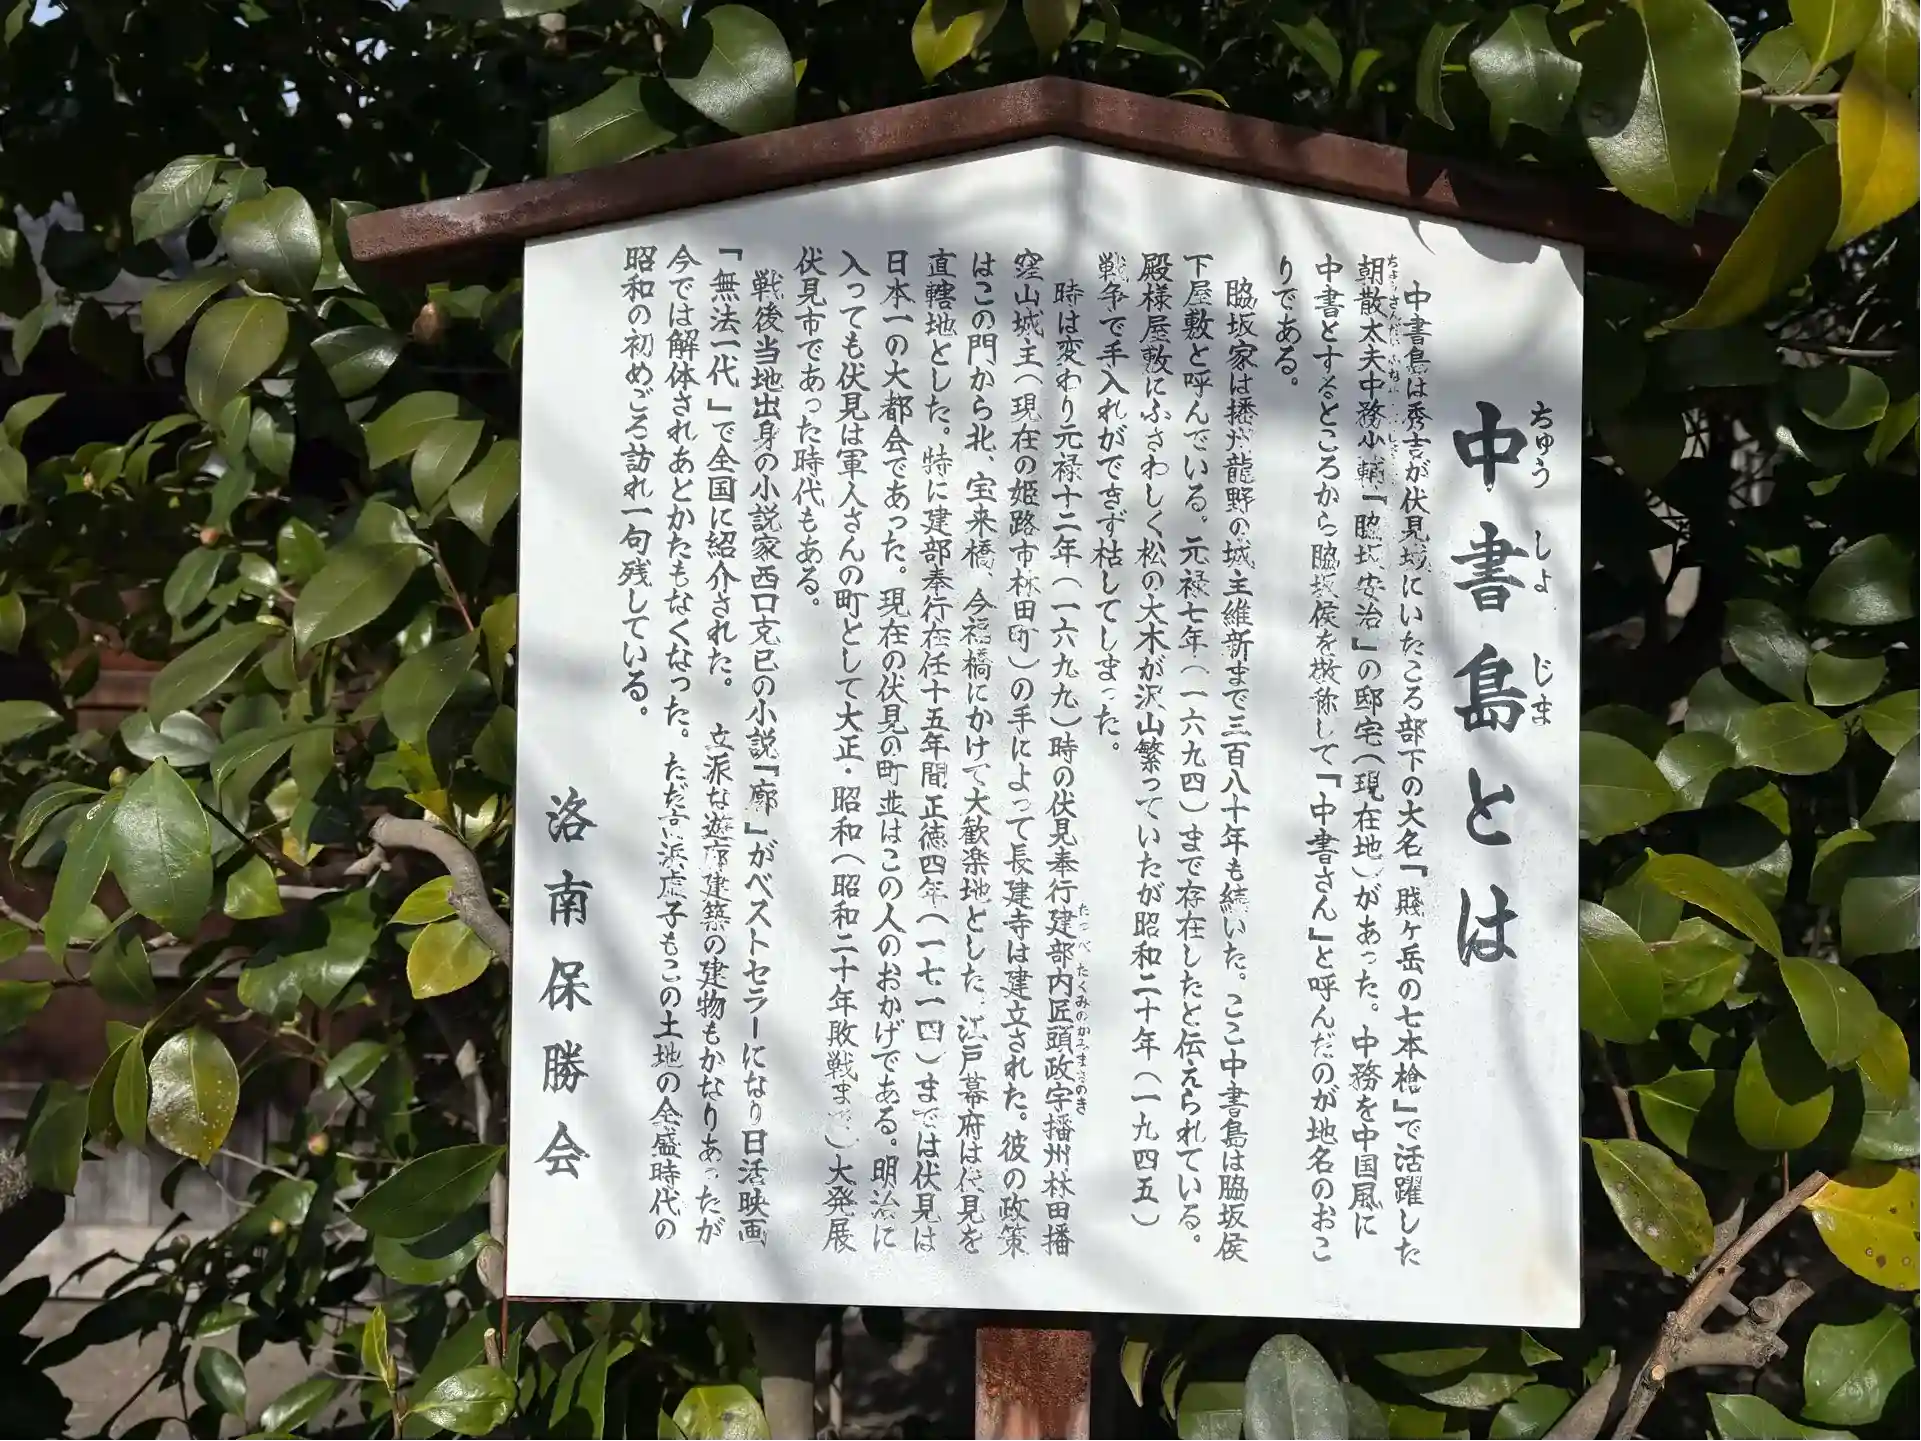 中書島とは
ちゅうしょじま
中書島は秀吉が伏見城にいたころ部下の大名「賤ヶ岳の七本槍」で活躍した
朝散太夫中務小輔「脇坂安治」の邸宅(現在地)があった。中務を中国風に
中書とするところから脇坂侯を敬称して「中書さん」と呼んだのが地名のおこ
りである。
脇坂家は播州龍野の城主維新まで三百八十年も続いた。ここ中書島は脇坂侯
下屋敷と呼んでいる。元禄七年(一六九四)まで存在したと伝えられている。
殿様屋敷にふさわしく松の大木が沢山繁っていたが昭和二十年(一九四五)
戦争で手入れができず枯してしまった。
時は変わり元禄十二年(一六九九)時の伏見奉行建部内匠頭政宇播州林田播
たっべ たくみのかみまさのき
窪山城主(現在の姫路市林田町)の手によって長建寺は建立された。彼の政策
はこの門から北、宝来橋、今福橋にかけて大歓楽地とした。江戸幕府は伏見を
直轄地とした。特に建部奉行在任十五年間正徳四年(一七一四)までは伏見は
日本一の大都会であった。現在の伏見の町並はこの人のおかげである。明治に
入っても伏見は軍人さんの町として大正・昭和(昭和二十年敗戦まで)大発展
伏見市であった時代もある。
戦後当地出身の小説家西口克已の小説「廓」がベストセラーになり日活映画
「無法一代」で全国に紹介された。 立派な遊廓建築の建物もかなりあったが
今では解体されあとかたもなくなった。ただ高浜虚子もこの土地の全盛時代の
昭和の初めごろ訪れ一句残している。
洛南保勝会